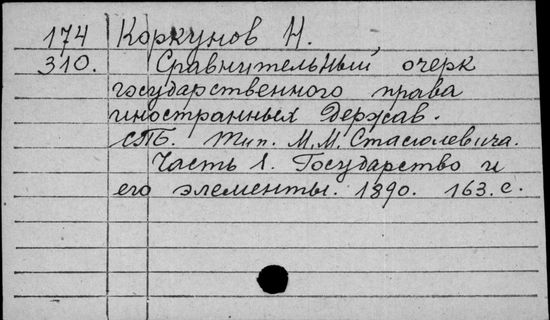 174 Коркунов Н.
310. Сравнительный очерк
государственного права
иностранных держав.
СПБ. Тип. М.М. Стасюлевича.
Часть 1. Государство и
его элементы. 1890. 163. с.